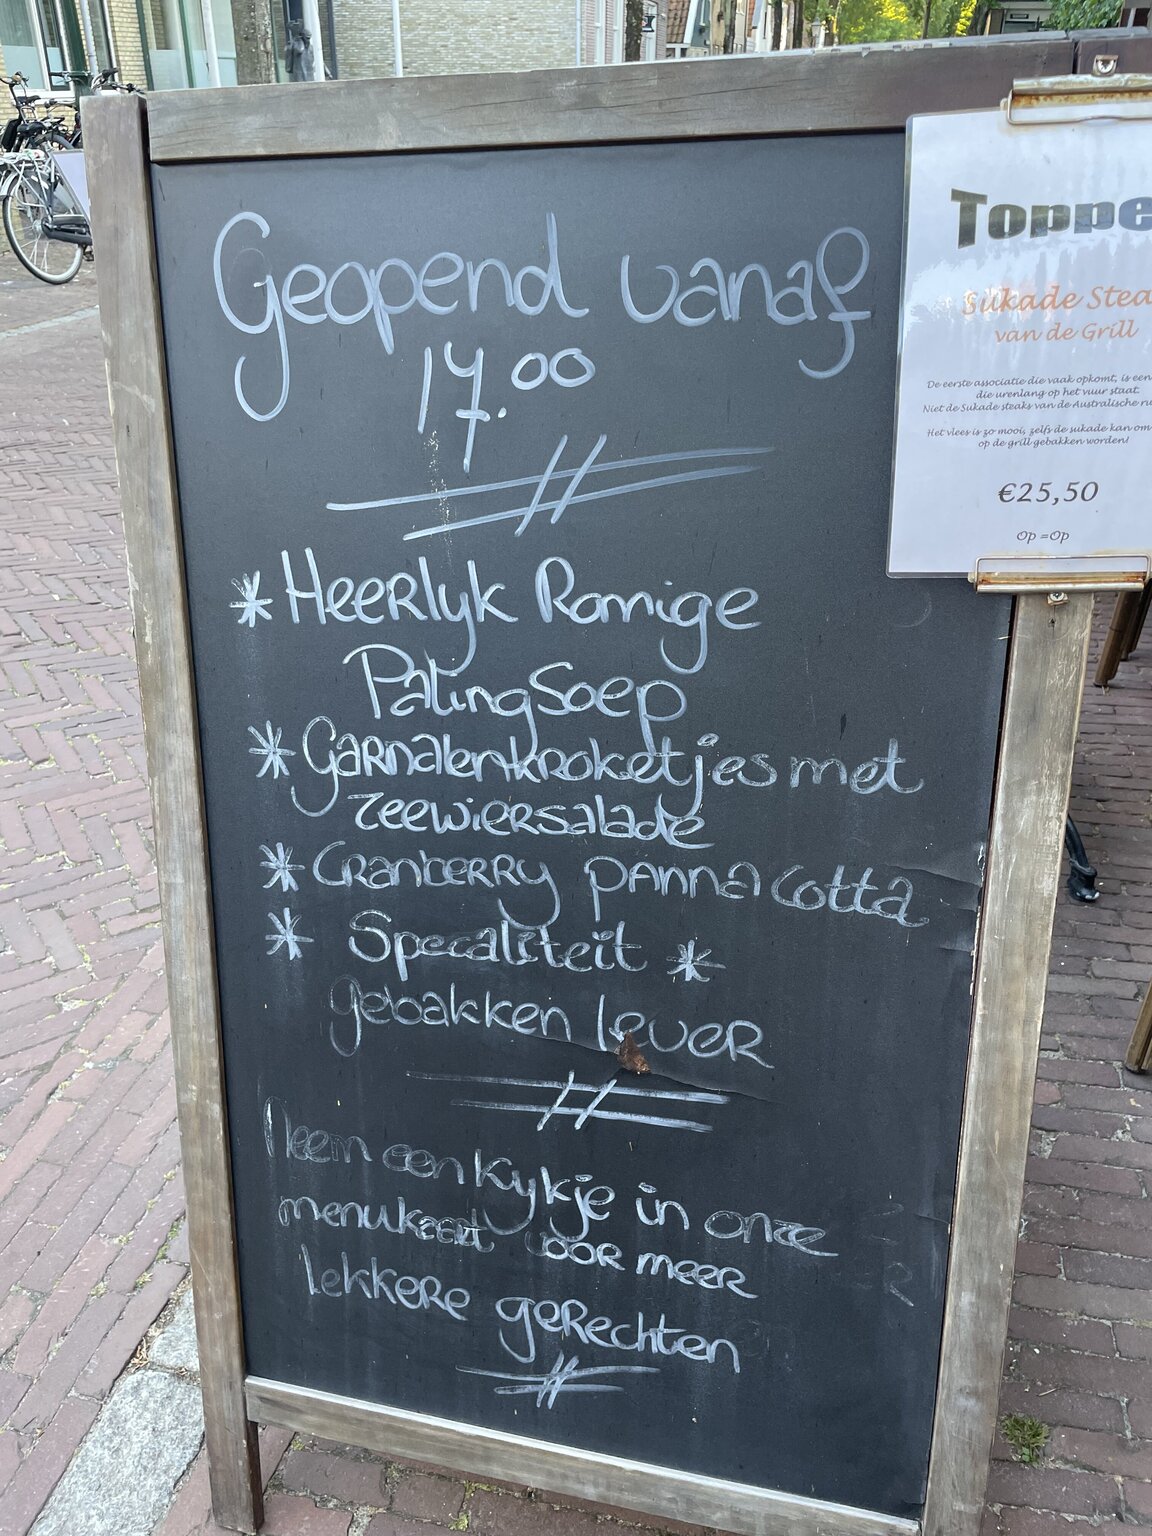 Geopend vanaf
17.00
* Heerlyk Romige
Palingsoep
* Garnalenkroketjes met
zeewiersalade
* Cranberry panna cotta
* Specaliteit *
gebakken lever
Neem een kykje in onze
menukaart voor meer
lekkere gerechten
Toppe
Sukade Stea
van de Grill
De eerste associatie die vaak opkomt, is een
die urenlang op het vuur staat.
Niet de Sukade steaks van de Australische ru
Het vlees is zo mooi, zelfs de sukade kan om
op de grill gebakken worden!
€25,50
Op =Op